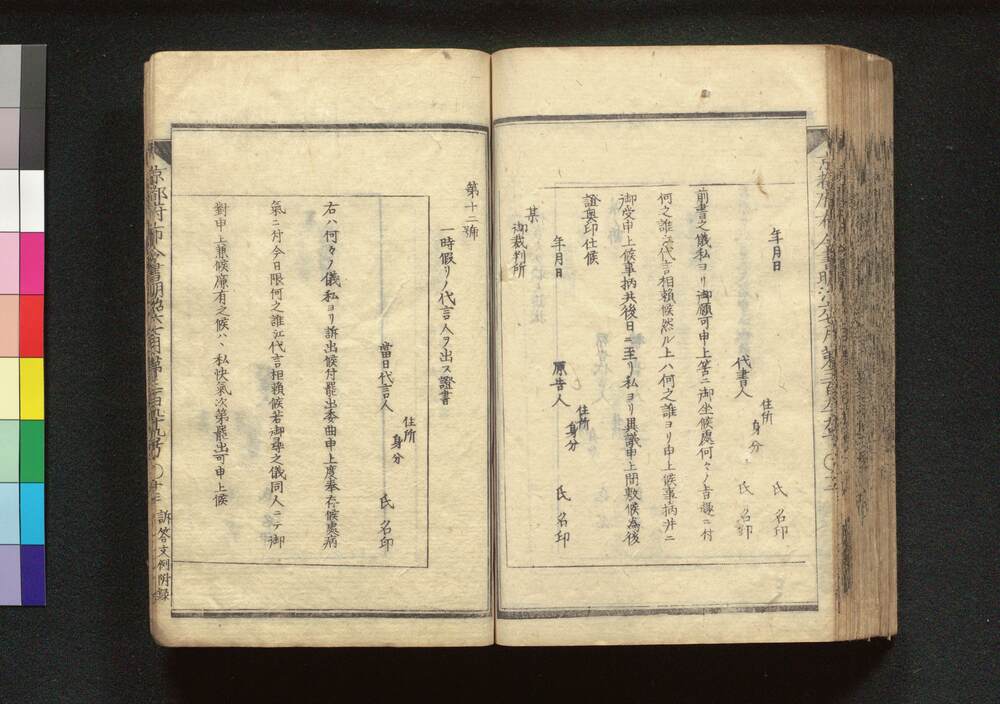 年月日
氏名印
代書人
住所
身分
氏名印
前書之儀私ヨリ御願可申上筈ニ御坐候處何々ノ ニ付
何之誰江代言相賴候然ル上ハ何之誰ヨリ申上候事柄并ニ
御受申上候事柄共後日ニ至リ私ヨリ異議申上間敷候為後
證奥印仕候
年月日
原告人
住所
身分
氏名印
某
御裁判所
第十二號
一時假リノ代言人ヲ出ス證書
當日代言人
住所
身分
氏名印
右ハ何々ノ儀私ヨリ訴出候付罷出委曲申上度奉存候處病
氣ニ付今日限何之誰江代言相賴候若御尋之儀同人ニテ御
對申上兼候廉有之候ハヽ私快氣次第罷出可申上候
京都府布令書明治六七月第二百四十九号
十二
訴答文例附録